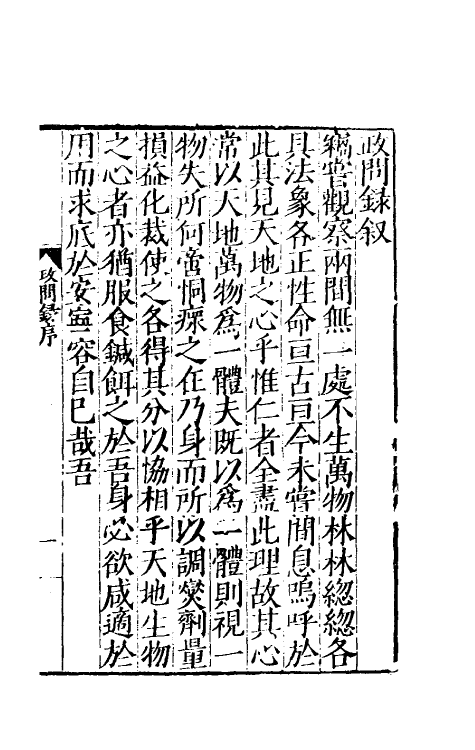 政問録叙
竊嘗觀察兩間無一處不生萬物林林緫緫各
具法象各正性命亘古亘今未嘗間息嗚呼於
此其見天地之心乎惟仁者全盡此理故其心
常以天地萬物爲一體夫既以爲一體則視一
物失所何啻恫瘝之在乃身而所以調爕劑量
損益化裁使之各得其分以協相乎天地生物
之心者亦猶服食鍼餌之於吾身必欲咸適於
用而求底於安寧容自已哉吾
政問録序
一